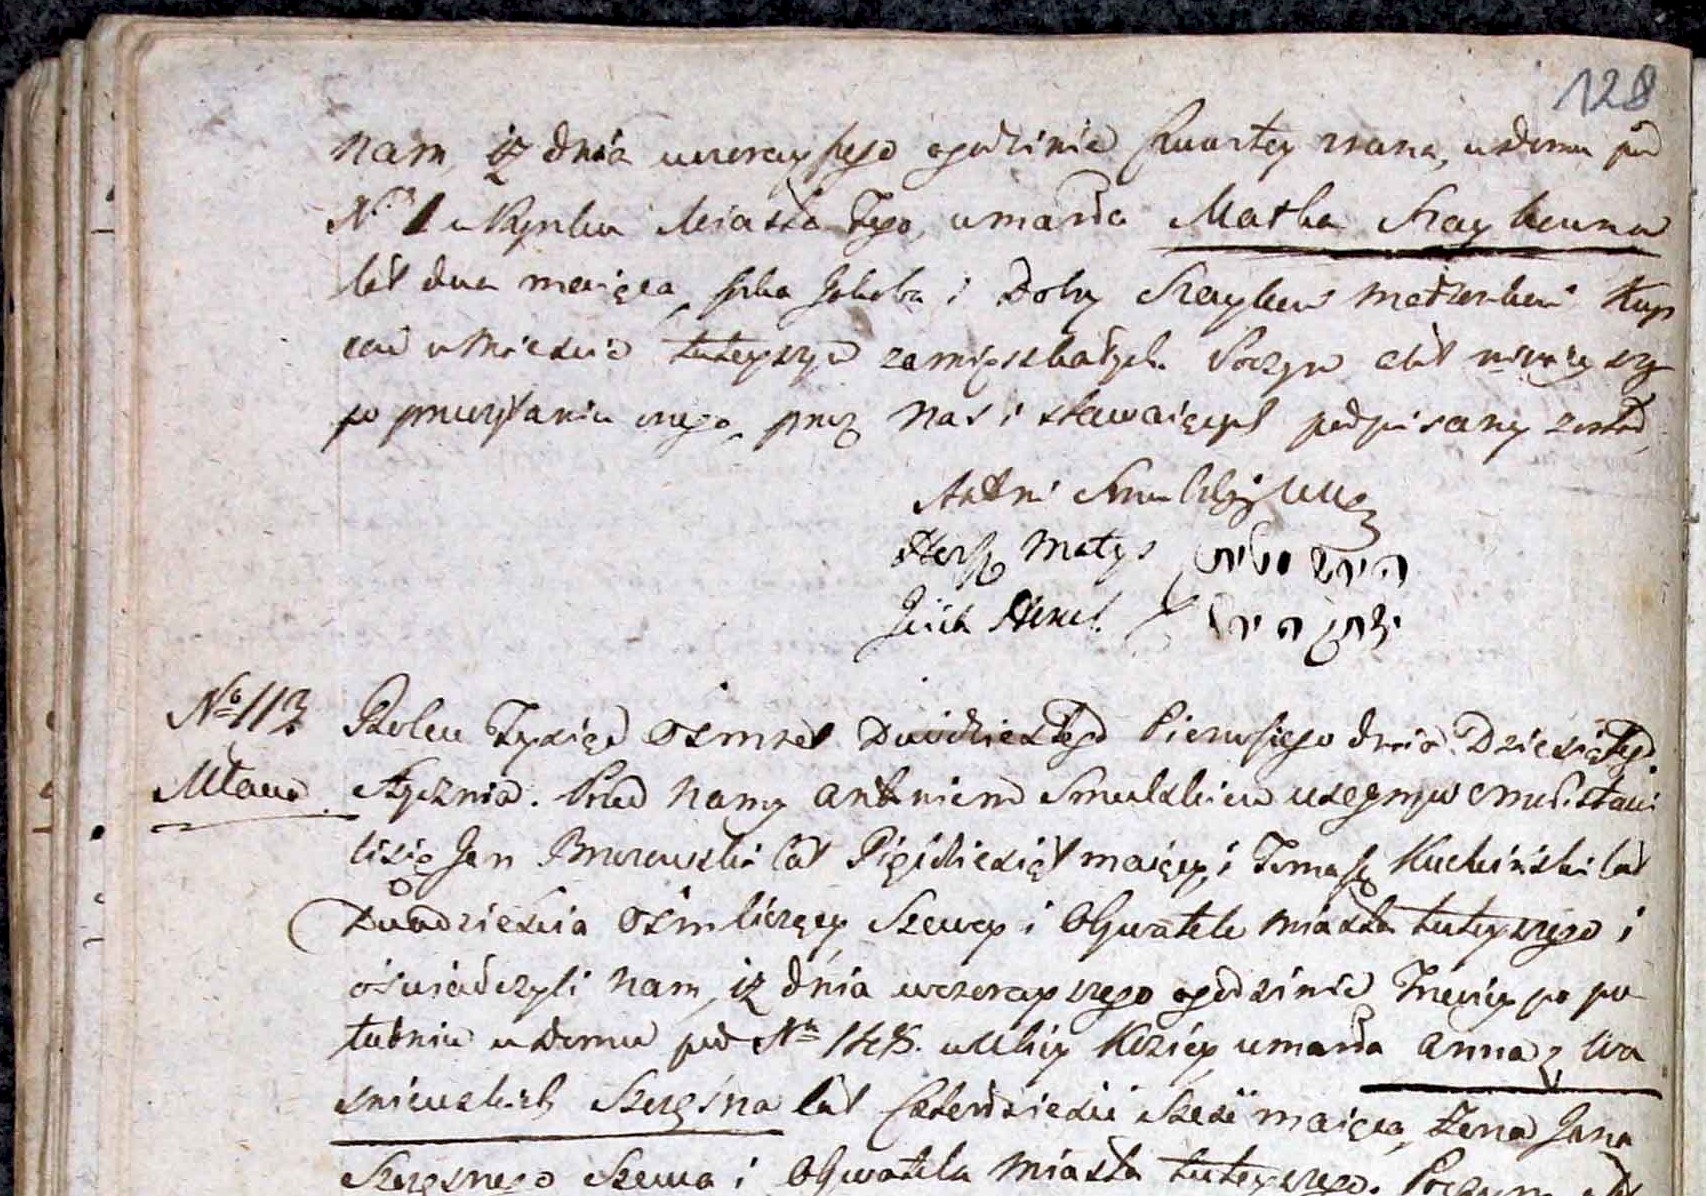 128
nam, iz dnia wczorayszego ogodzinie Czwartey zrana, wdomu pod
Nro 1 wRynku Miasta Tego, umarła Matka Szaykowna
lat dwa maięca, Jakoba i Doby Szayków małżonków Kup
ców wMieście tuteyszym zamieszkałych. Poczym akt ninieyszy
po przeczytaniu onego, przez nas i stawaięcych podpisany został,
Antoni Smulski
Hersz Matys
Henel.
No 113 Roku Tysięc Osmset Dwudziestego Pierwszego dnia Dziesiątego
Mława Stycznia. Przed Namy Antoniem Smulskiem stawi
lisię Jan lat Pięćdziesiąt maięcy i Tomasz Kuchciński lat
Dwadzieścia Ośm liczęcy Szewcy i Obywatele Miasta tuteyszego i
oświadczyli nam, iz dnia wczorayszego ogodzinie Trzeciey po po
łudniu wdomu pod Nr wUlicy Koziey umarła Anna z Wa
śniewskich Szczęsna lat Czterdzieście Sześć maięca, Żona Jana
Szczęsnego Szewca i Obywatela Miasta tuteyszego. Poczym